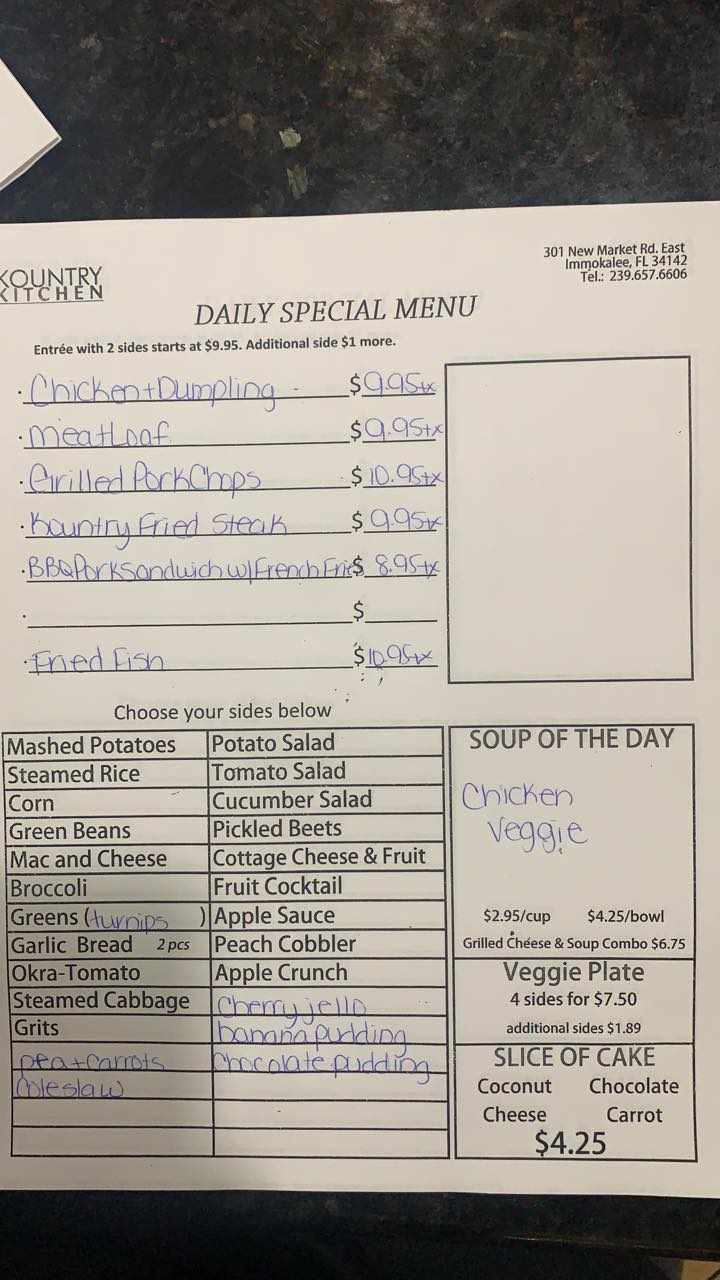 KOUNTRY
KITCHEN
301 New Market Rd. East
Immokalee, FL 34142
Tel.: 239.657.6606
DAILY SPECIAL MENU
Entrée with 2 sides starts at $9.95. Additional side $1 more.
· Chicken + Dumpling - $9.95tx
· MeatLoaf $9.95tx
· Grilled PorkChops $10.95tx
· Kountry Fried Steak $9.95tx
· BBQ Pork Sandwich w/ French Fries $8.95tx
· $
· Fried Fish $10.95tx
Choose your sides below
Mashed Potatoes Potato Salad
Steamed Rice Tomato Salad
Corn Cucumber Salad
Green Beans Pickled Beets
Mac and Cheese Cottage Cheese & Fruit
Broccoli Fruit Cocktail
Greens (turnips ) Apple Sauce
Garlic Bread 2 pcs Peach Cobbler
Okra-Tomato Apple Crunch
Steamed Cabbage Cherry jello
Grits banana pudding
pea + carrots Chocolate pudding
Coleslaw
SOUP OF THE DAY
Chicken
Veggie
$2.95/cup $4.25/bowl
Grilled Cheese & Soup Combo $6.75
Veggie Plate
4 sides for $7.50
additional sides $1.89
SLICE OF CAKE
Coconut Chocolate
Cheese Carrot
$4.25